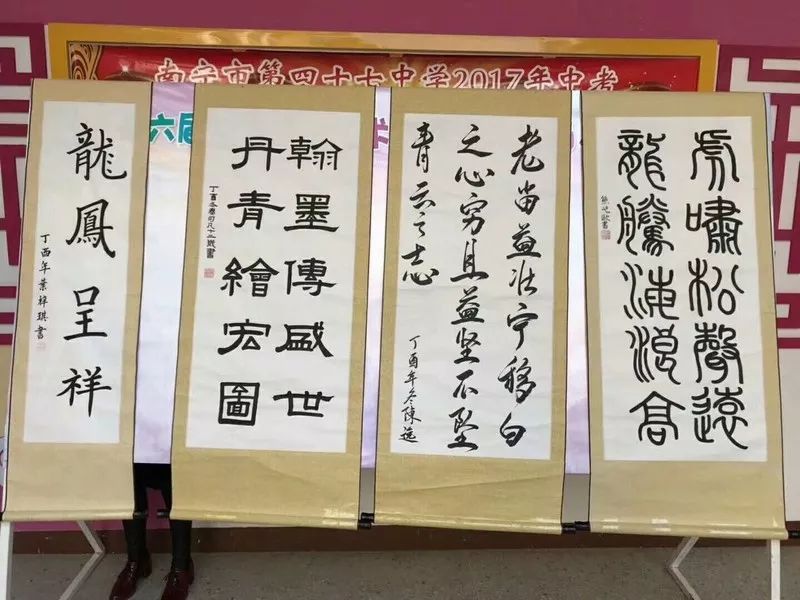 南宁市第四十七中学2017年中考
六届
术
龍鳳呈祥
丁酉年葉梓琪書
翰墨傳盛世
丹青繪宏圖
丁酉冬
老当益壮宁移白
之心穷且益坚不坠
青云之志
丁酉年冬陳逸
虎嘯松聲遠
龍騰海浪高